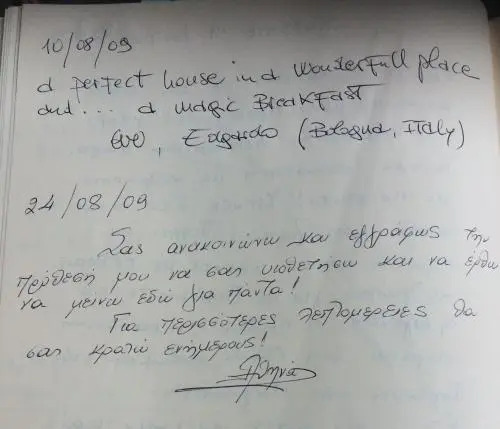 10/08/09
a perfect house in a wonderfull place
and... a magic BreakFast
Eve, Edgardo (Bologna, Italy)
24/08/09
Σας ανακοινώνω και εγγράφως την
πρόθεσή μου να σας υιοθετήσω και να έρθω
να μείνω εδώ για πάντα!
Για περισσότερες λεπτομέρειες θα
σας κρατώ ενήμερους!
Αθηνά